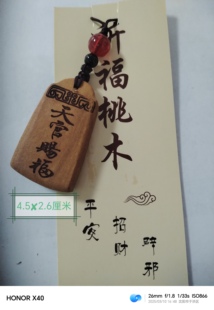 祈福桃木
天官賜福
4.5×2.6厘米
平安
招財
辟邪
HONOR X40
26mm f/1.8 1/33s ISO866